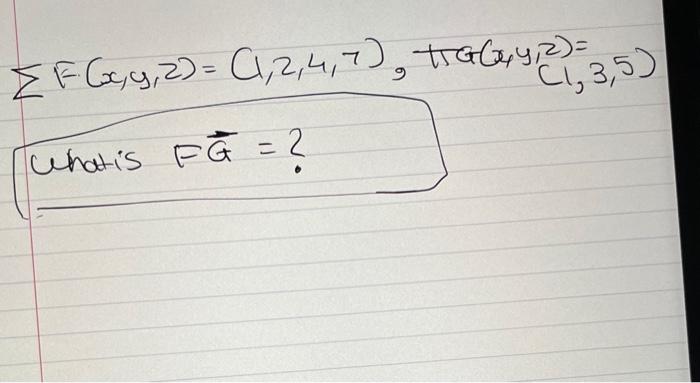 ∑ F(x,y,z) = (1,2,4,7), π G(x,y,z) =
(1,3,5)
What is F G⃗ = ?